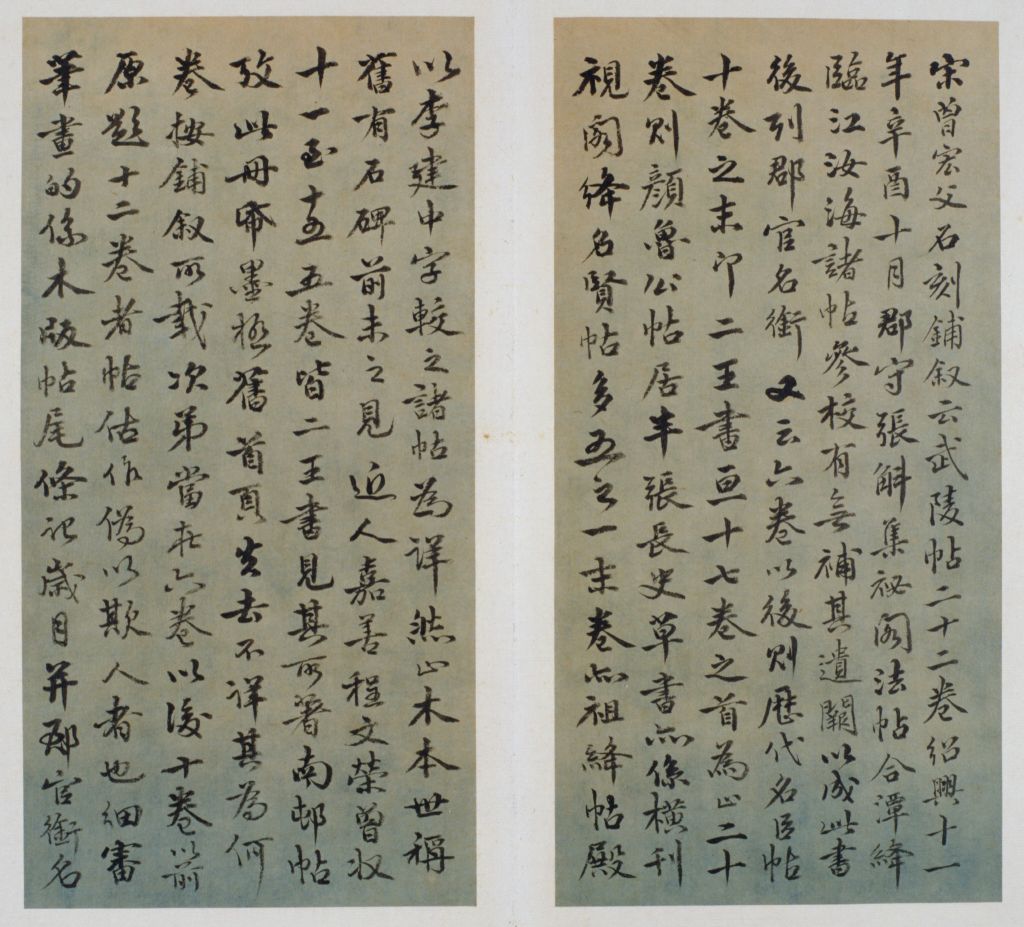 宋曾宏父石刻鋪叙云武陵帖二十二卷紹興十一
年辛酉十月郡守張斛集祕閣法帖合潭絳
臨江汝海諸帖參校有無補其遺闕以成此書
後列郡官名銜又云六卷以後則歷代名臣帖
十卷之末卩二王書亘十七卷之首為止二十
卷則顏魯公帖居半張長史草書亦係橫刊
視閣絳名賢帖多五之一末卷亦祖絳帖殿
以李建中字較之諸帖為詳然止木本世稱
舊有石碑前未之見近人嘉善程文榮曾収
十一至十五五卷皆二王書見其所著南邨帖
攷此冊帋墨極舊首頁失去不詳其為何
卷按鋪叙所載次第當在六卷以後十卷以前
原題十二卷者帖估作偽以欺人者也細審
筆畫的係木版帖尾條記歲月并郡官銜名